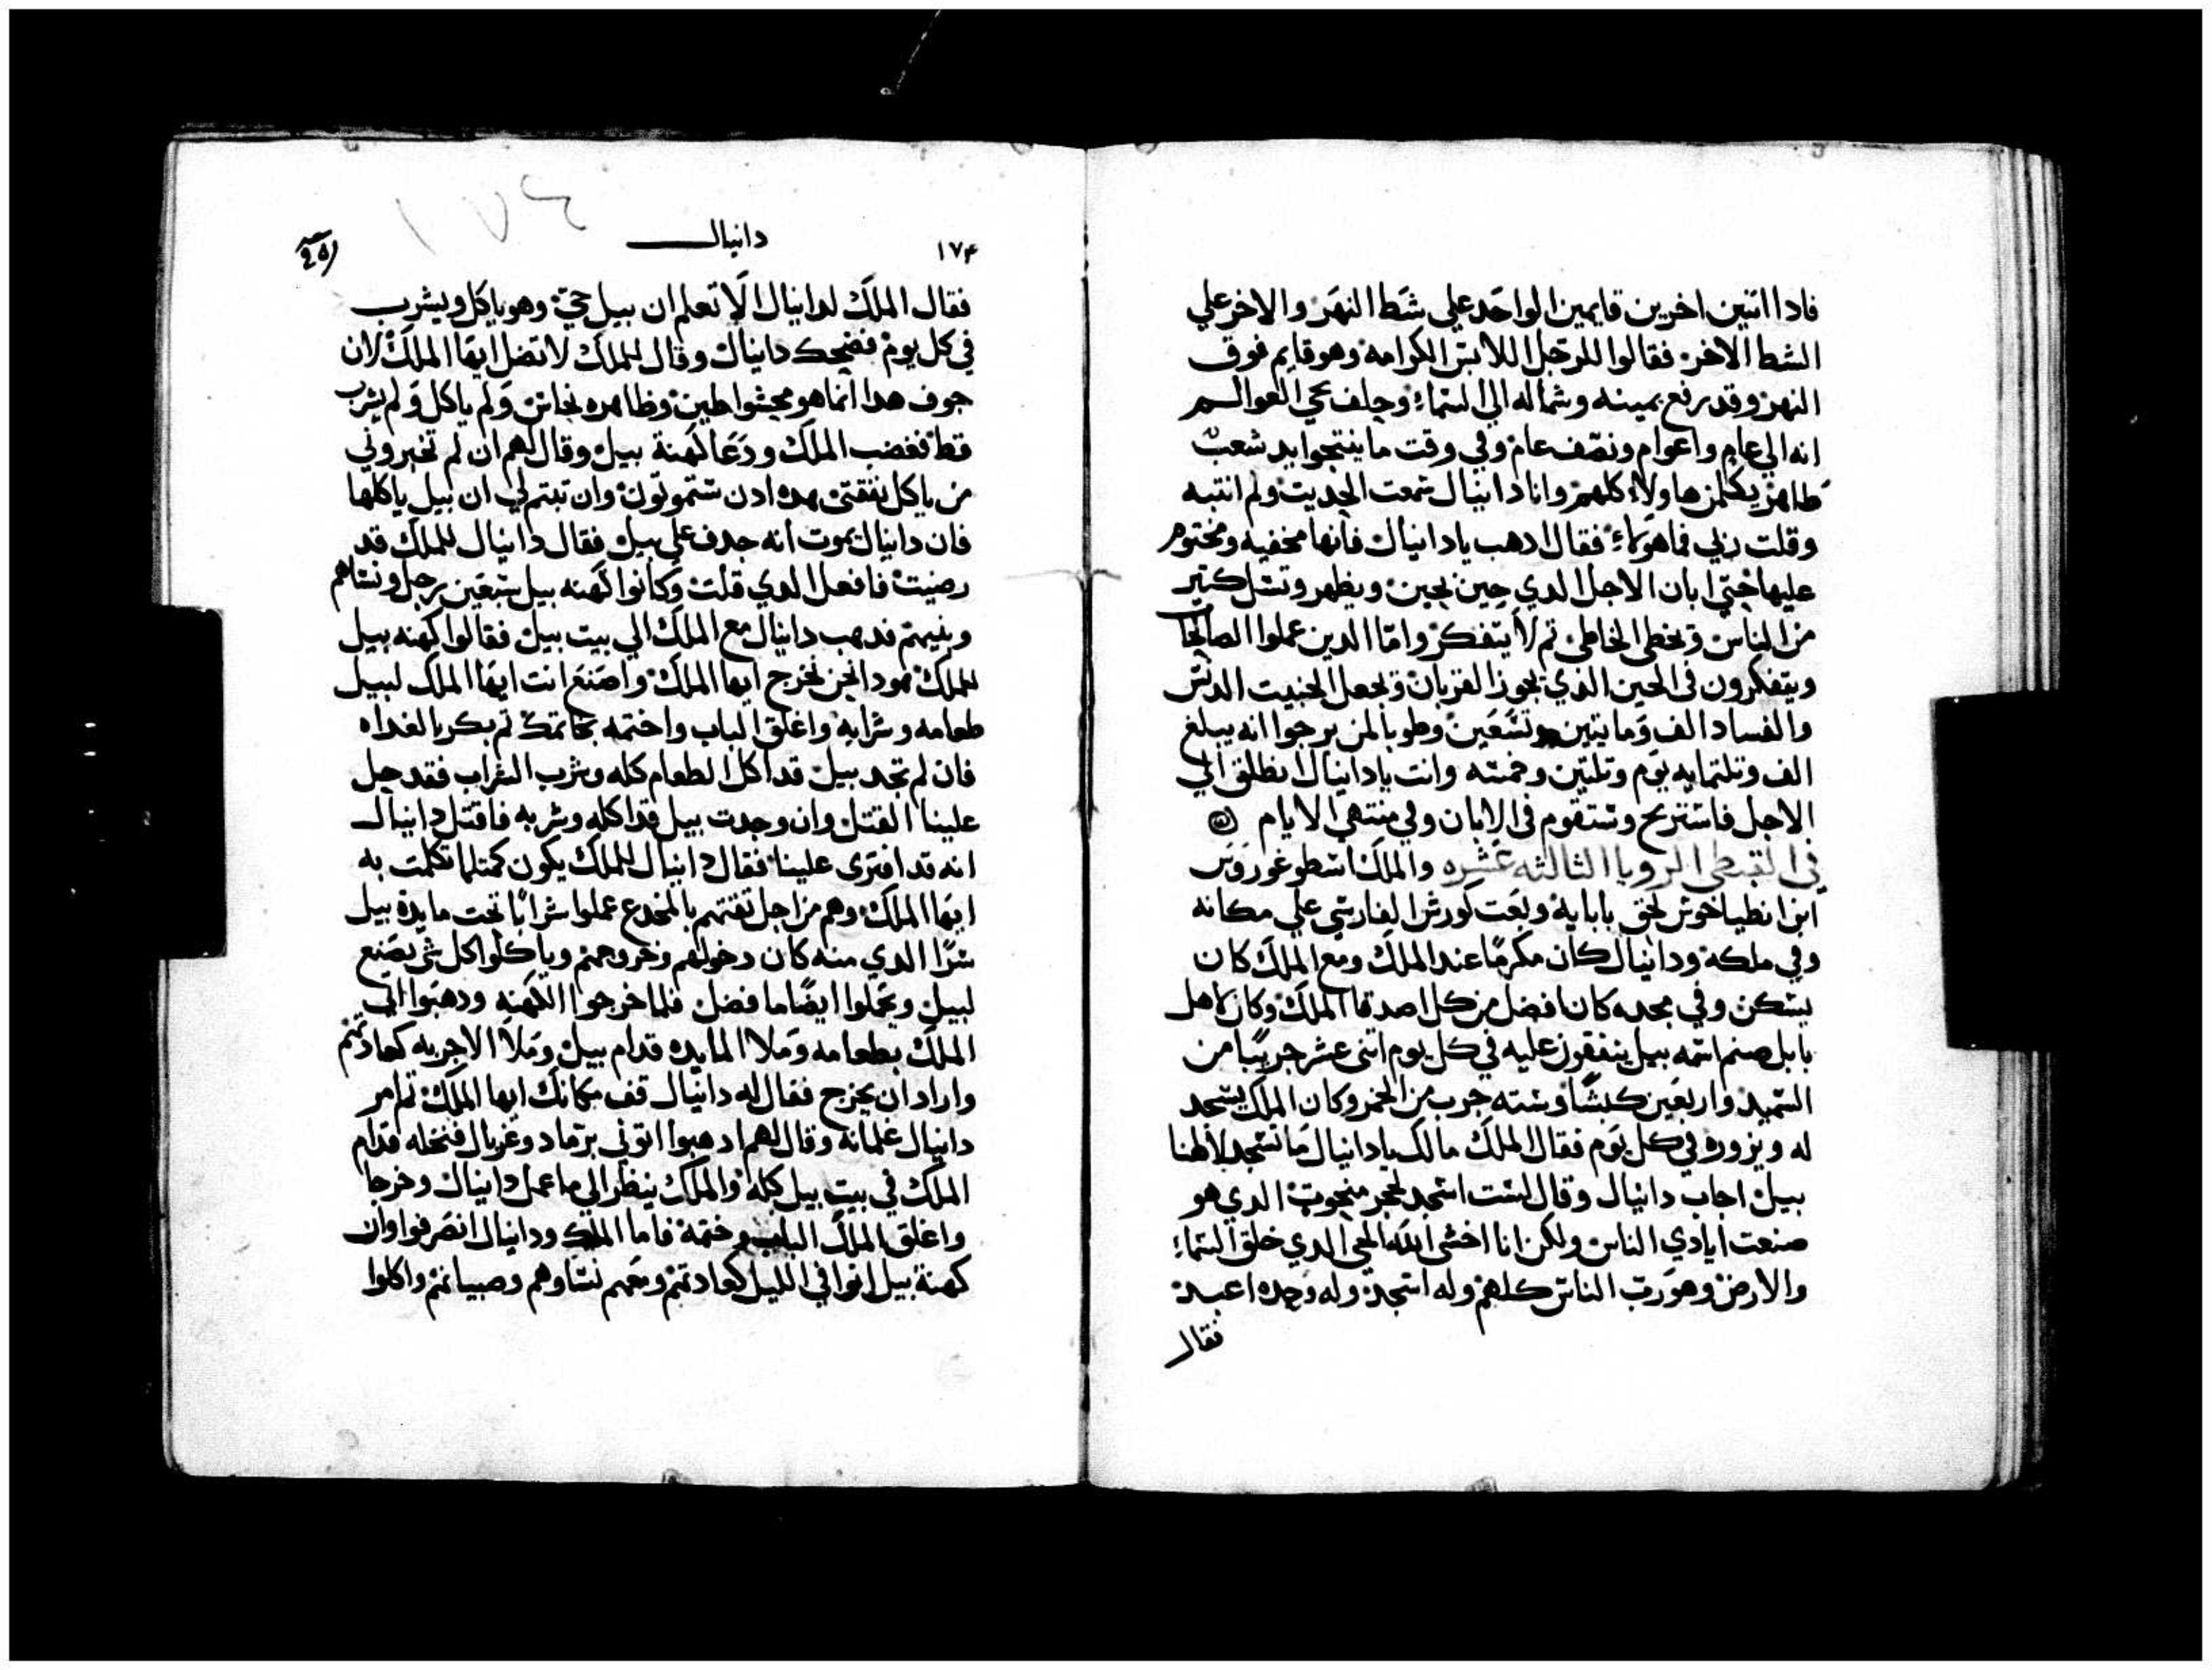 فادا اتنين اخرين قايمين الواحد علي شط النهر والاخر علي
الشط الاخر فقالوا للرجل اللابس الكرامه وهو قايم فوق
النهر وقد رفع يمينه وشماله الي السماء وحلف بحي العوالم
انه الي عام واعوام ونصف عام وفي وقت ما ينتجوا يد شعب
طاهر يكلمن هاولاء كلهم وانا دانيال سمعت الحديت ولم انتبه
وقلت ربي فما هو فقال ادهب يا دانيال فانها مخفيه ومختوم
عليها حتي ابان الاجل الدي حين بحين ويظهر كتير
من الناس ويخطي الخاطي تم لا يتفكر واما الدين عملوا الصالحات
ويتفكرون في الحين الدي يجوز القربان ويجعل الجنيت الدنس
والفساد الف وماتيتين وتسعين وطوبا لمن يرجوا انه يبلغ
الف وتلتمايه يوم وتلتين وخمسه وانت يا دانيال انطلق الي
الاجل فاستريح وستقوم في الابان وفي منتهي الايام
في القبطي الرويا الثالثه عشره والملك اسطوغوروس
ابن انطياخوش لحق بابايه وبعت كورش الفارسي علي مكانه
وفي ملكه ودانيال كان مكرمًا عند الملك ومع الملك كان
يسكن وفي مجده كان افضل من كل اصدقا الملك وكان لاهل
بابل صنم اسمه بيل ينفقون عليه في كل يوم اتني عشر جريبًا من
السميد واربعين كبشًا وسته جرب من الخمر وكان الملك يسجد
له ويزوره في كل يوم فقال الملك مالك يا دانيال ما تسجد لالهنا
بيل اجاب دانيال وقال لست اسجد لحجر منحوت الدي هو
صنعت ايادي الناس ولكن انا اخشي الله الحي الدي خلق السماء
والارض وهو رب الناس كلهم وله اسجد وله وحده اعبد
فقال
١٧٤
دانيال
فقال الملك لدانيال الا تعلم ان بيل حي وهو ياكل ويشرب
في كل يوم فضحك دانيال وقال للملك لا تضل ايها الملك لان
جوف هدا انما هو محشوا طين وظاهره نحاس ولم ياكل ولم يشرب
قط فغضب الملك ودعا كهنة بيل وقال لهم ان لم تخبروني
من ياكل نفقتي هده ادن ستموتون وان تبتم لي ان بيل ياكلها
فان دانيال يموت انه جدف علي بيل فقال دانيال للملك قد
رضيت فافعل الدي قلت وكانوا كهنه بيل سبعين رجل ونساهم
وبنيهم فدهب دانيال مع الملك الي بيت بيل فقالوا كهنه بيل
للملك هودا نحن نخرج ايها الملك واصنع انت ايها الملك لبيل
طعامه وشرابه واغلق الباب واختمه بخاتمك تم بكر بالغداه
فان لم تجد بيل قد اكل الطعام كله وشرب الشراب فقد حل
علينا القتل وان وجدت بيل قد اكله وشربه فاقتل دانيال
انه قد افتري علينا فقال دانيال للملك يكون كمتلما تكلمت به
ايها الملك وهم من اجل تقتهم بالمخدع عملوا سرابًا تحت مايدة بيل
سرًا الدي منه كان دخولهم وخروجهم وياكلوا كل شي يصنع
لبيل ويحملوا ايضًا ما فضل فلما خرجوا الكهنه ودهبوا اتي
الملك بطعامه وملا المايده قدام بيل وملا الاجربه كعادتهم
واراد ان يخرج فقال له دانيال قف مكانك ايها الملك تم امر
دانيال غلمانه وقال لهم ادهبوا اتوني برماد وغربال فنخله قدام
الملك في بيت بيل كله والملك ينظر الي ما عمل دانيال وخرجا
واغلق الملك الباب وختمه فاما الملك ودانيال انصرفوا وان
كهنة بيل اتوا في الليل كعادتهم ومعهم نساوهم وصبيانهم واكلوا